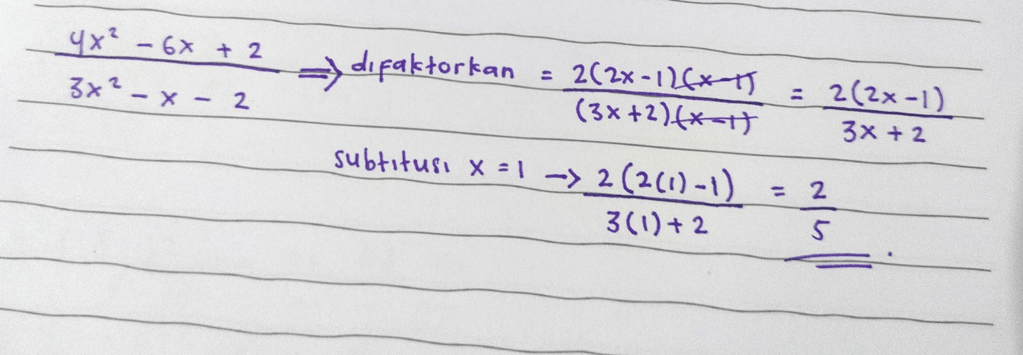 4x² - 6x + 2 / 3x² - x - 2 ⇒ difaktorkan = 2(2x-1)(x-1) / (3x+2)(x-1) = 2(2x-1) / 3x+2
subtitusi x = 1 → 2(2(1)-1) / 3(1)+2 = 2 / 5 .